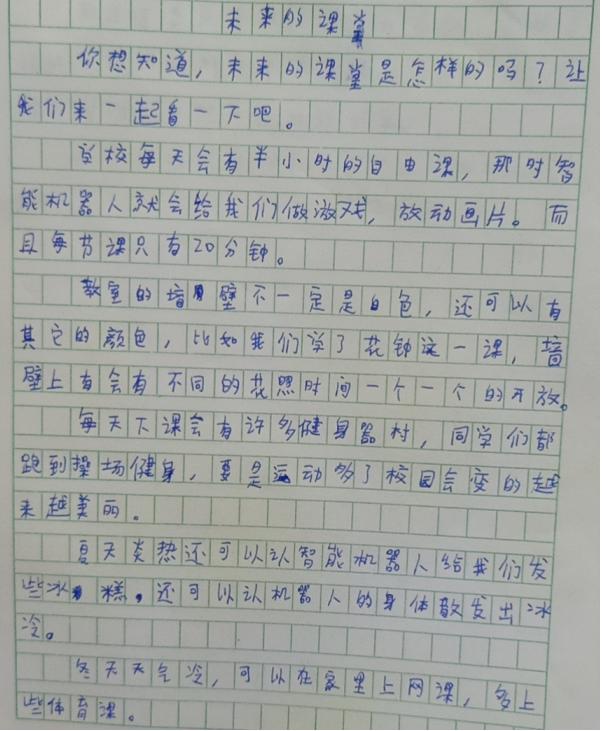 未来的课堂
你想知道，未来的课堂是怎样的吗？让
我们来一起看一下吧。
学校每天会有半小时的自由课，那时智
能机器人就会给我们做游戏，放动画片。而
且每节课只有20分钟。
教室的墙壁不一定是白色，还可以有
其它的颜色，比如我们学了花钟这一课，墙
壁上有会有不同的花照时间一个一个的开放。
每天下课会有许多健身器材，同学们都
跑到操场健身，要是运动多了校园会变的越
来越美丽。
夏天炎热还可以认智能机器人给我们发
些冰糕。还可以认机器人的身体散发出冰
冷。
冬天天气冷，可以在家里上网课，多上
些体育课。